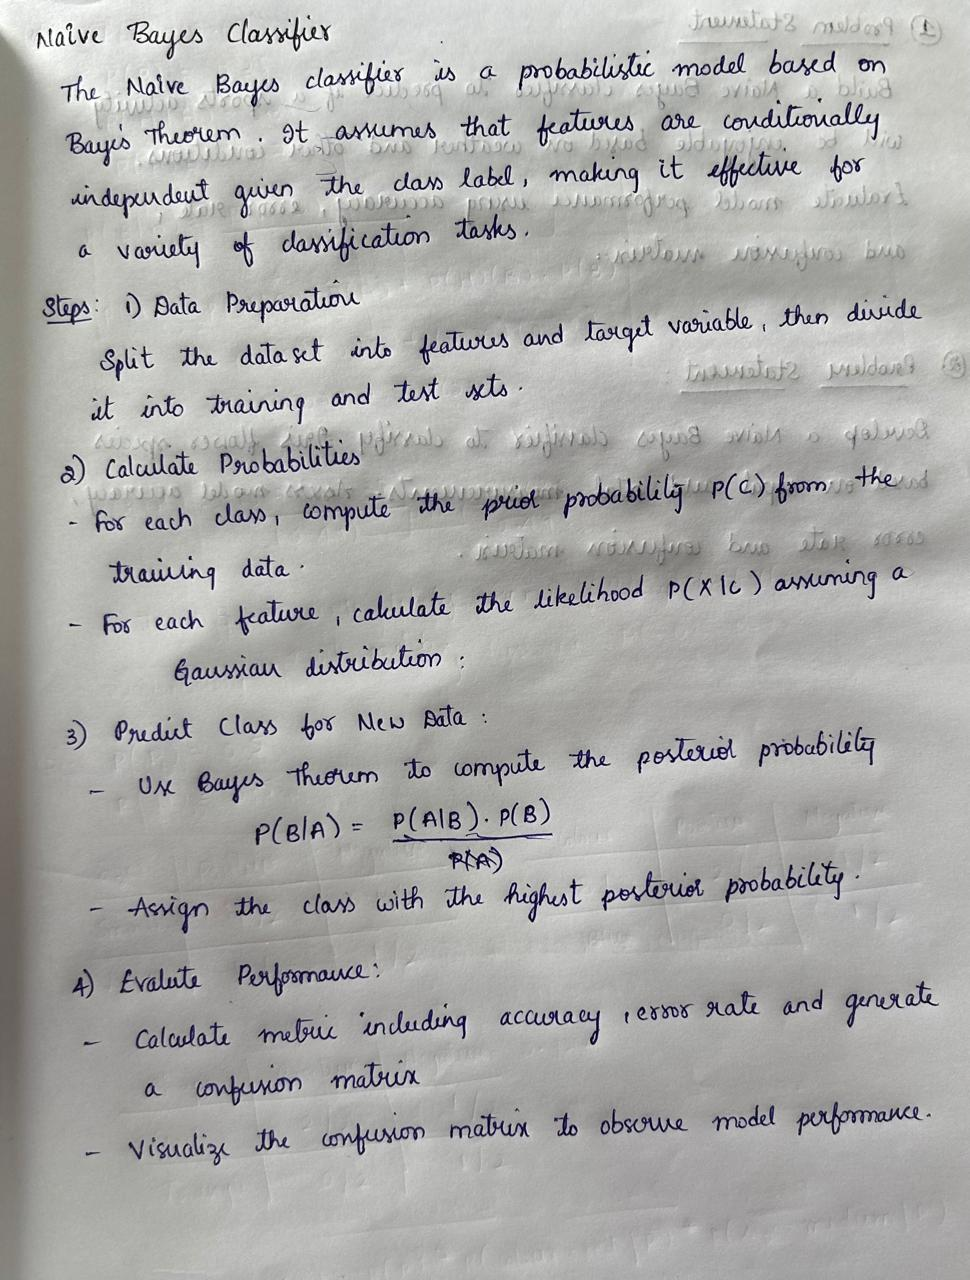 Naive Bayes Classifier
The Naive Bayes classifier is a probabilistic model based on
Bayis Theorem. It assumes that features are conditionally
independent given the class label, making it effective for
a variety of classification tasks.
Steps: 1) Data Preparation
Split the dataset into features and target variable, then divide
it into training and test sets.
2) Calculate Probabilities
- For each class, compute the prior probability P(C) from the
training data.
- For each feature, calculate the likelihood P(X|C) assuming a
Gaussian distribution:
3) Predict Class for New Data:
- Use Bayes Theorem to compute the posterior probability
P(B|A) = P(A|B). P(B)
P(A)
- Assign the class with the highest posterior probability.
4) Evalute Performance:
- Calculate metric including accuracy, error rate and generate
a confusion matrix
- Visualize the confusion matrix to observe model performance.